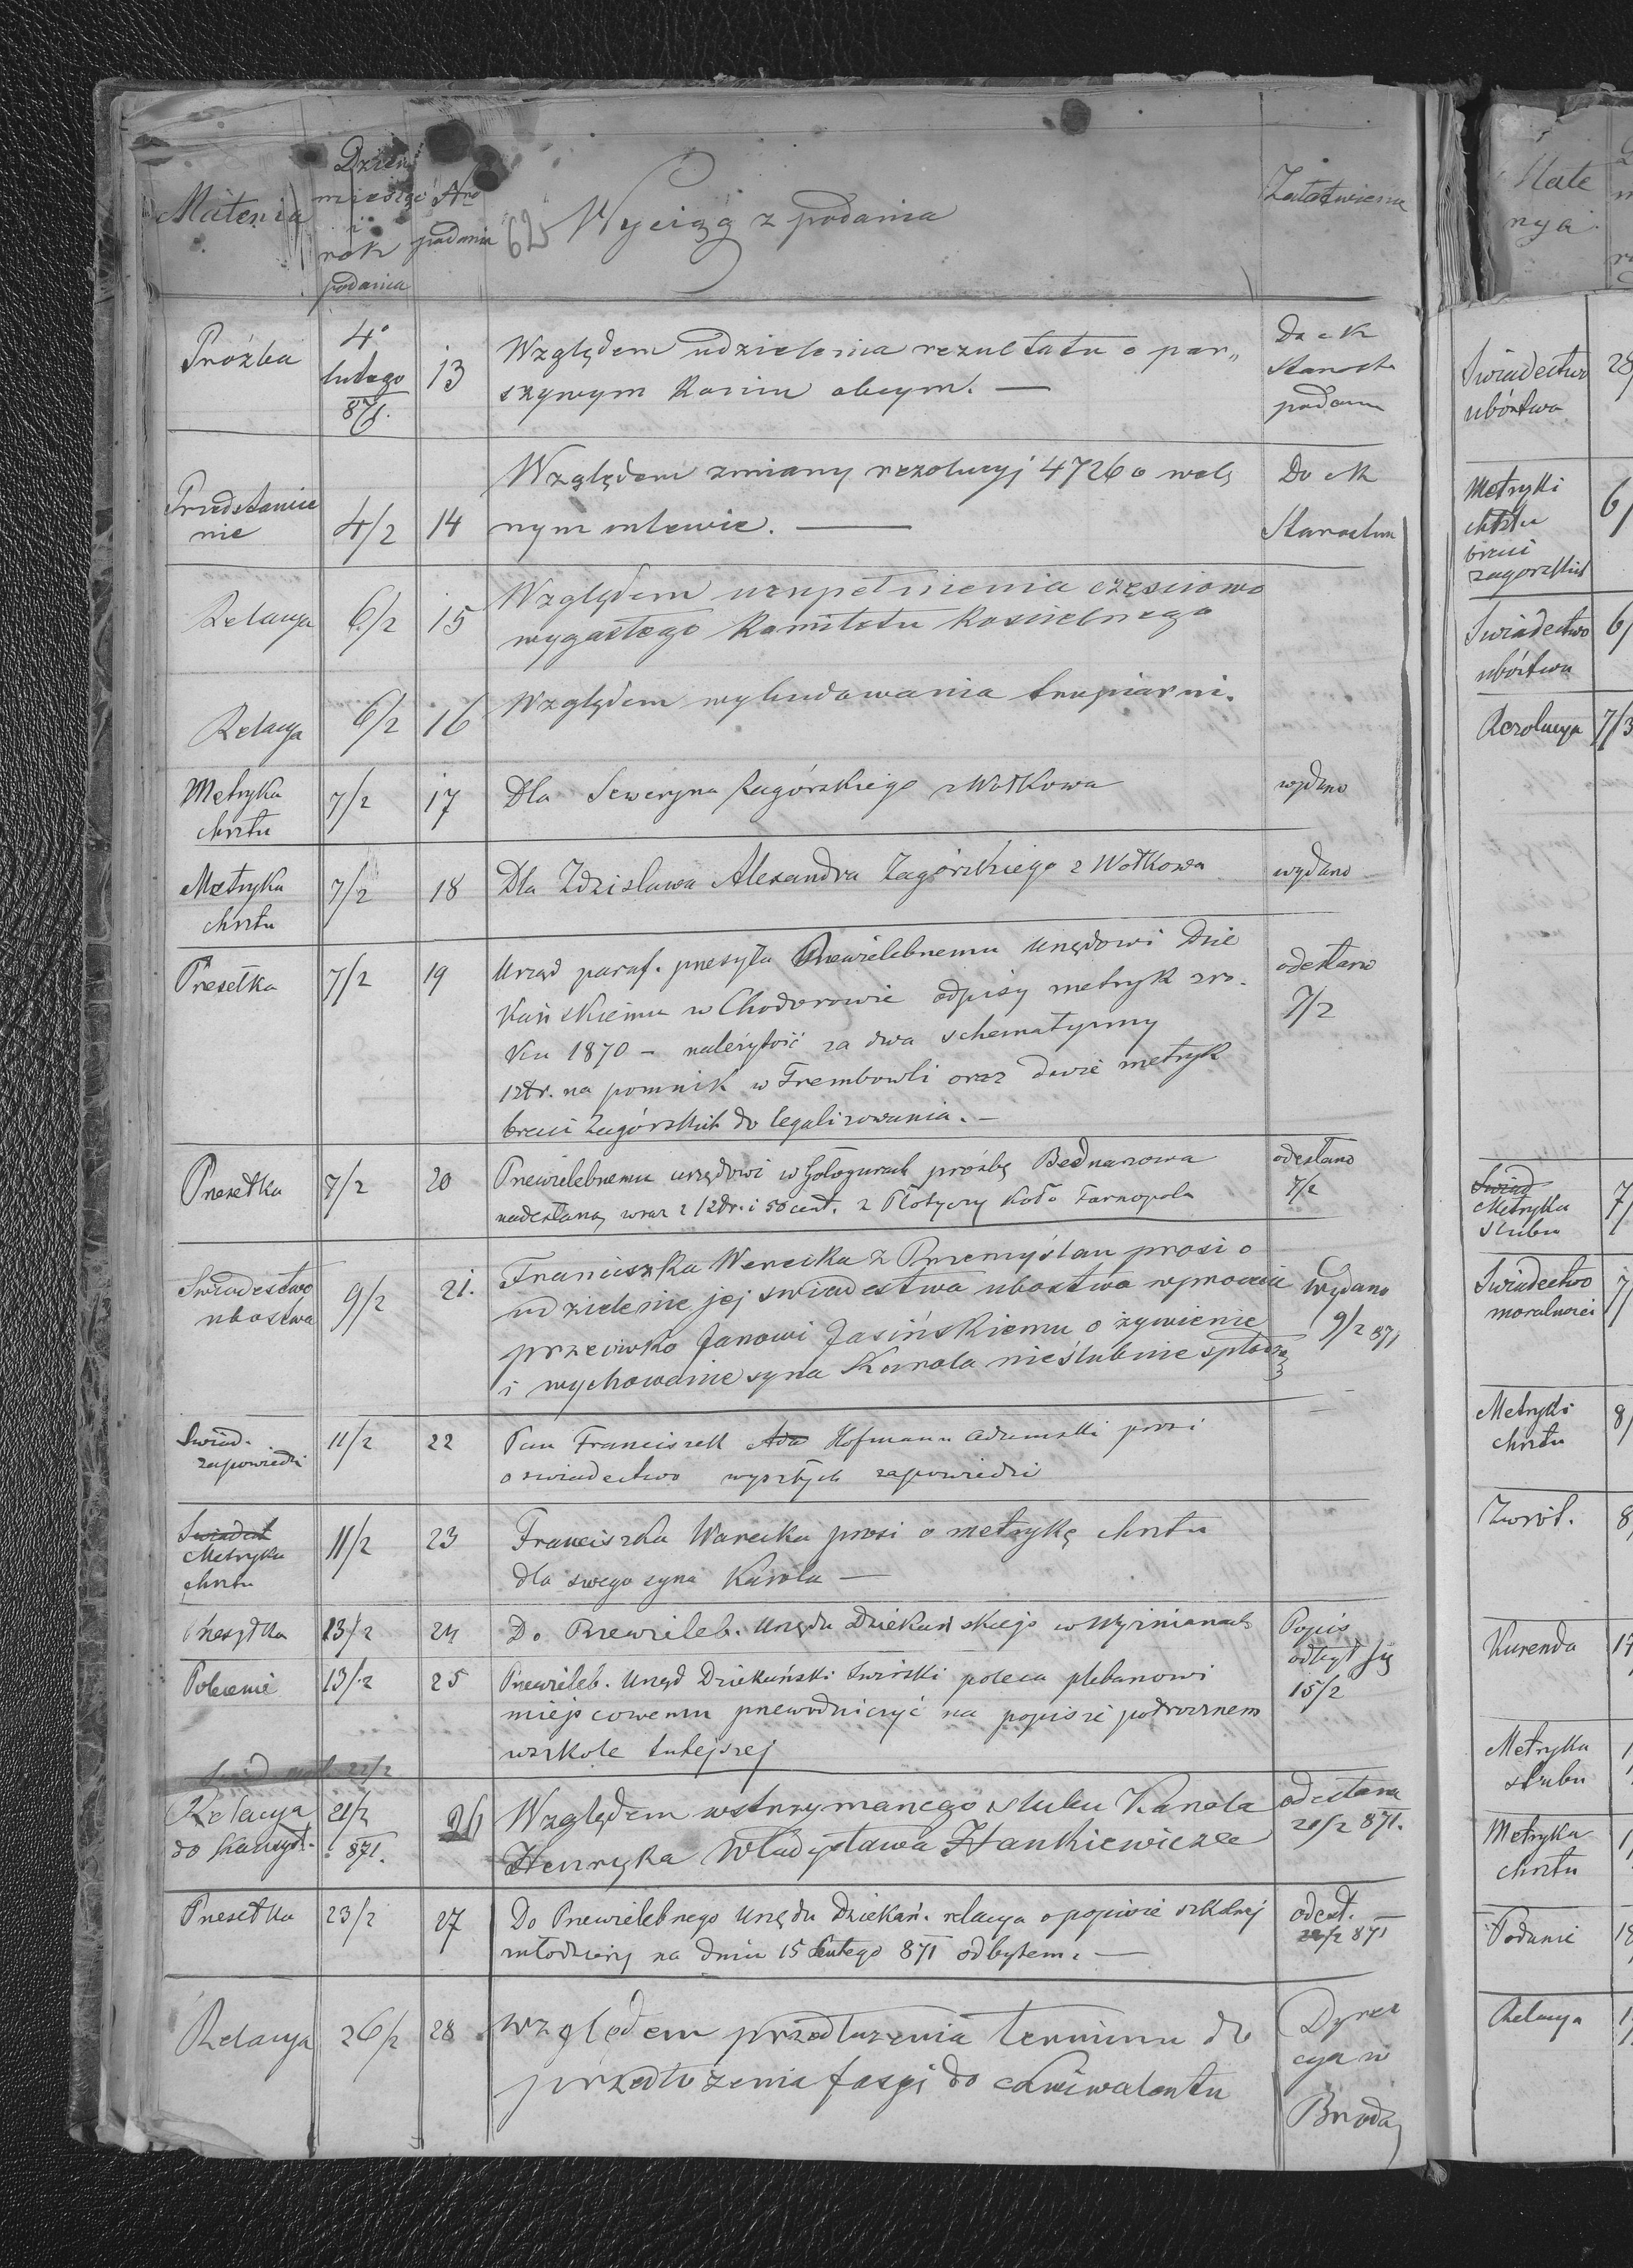 Materia
Dzień
miesiąc
i
rok
podania
Nro
podania
62
Wyciąg z podania
Załatwienie
Prożba
4º
lutego
871.
13
Względem udzielenia rezultatu o par„
szywym koniu obcym. —
Do ck
Starost
podano
Przedstawie
nie
4/2
14
Względem zmiany rezolucyj 4726 o
nym mlewie. —
Do ck
Starostwa
Relacya
6/2
15
Względem uzupełnienia częsciowo
wygasłego Komitetu Koscielnego
Relacya
6/2
16
Względem wybudowania trupiarni.
Metryka
chrztu
7/2
17
Dla Seweryna Zagórskiego z Wołkowa
wydano
Metryka
chrztu
7/2
18
Dla Zdzisława Alexandra Zagórskiego z Wołkowa
wydano
Przesełka
7/2
19
Urząd paraf. przesyła Przewielebnemu Urzędowi Dzie
kańskiemu w Chodorowie odpisy metryk z ro.
ku 1870 – należytość za dwa schematyzmy
1złr. na pomnik w Trembowli oraz dwie metryk
braci Zagórskich do legalizowania. —
odesłano
7/2
Przesełka
7/2
20
Przewielebnemu urzędowi w Gołogurach prożbę Bednarzowa
nadesłaną wraz z 1złr. i 50 cent. z Płotyczy koło Tarnopola
odesłano
7/2
Swiadestwo
ubostwa
9/2
21.
Franciszka Werecka z Przemyślan prosi o
udzielenie jej swiadestwa ubostwa w procesie
przeciwko Janowi Jasińskiemu o żywienie
i wychowanie syna Karola nieślubnie spłodzo
Wydano
9/2 871
Swiad.
zapowiedzi
11/2
22
Pan Franciszek Ada Hofmann Adamski prosi
o swiadectwo wyszłych zapowiedzi
Swiadect
Metryka
chrztu
11/2
23
Franciszka Warecka prosi o metrykę chrztu
dla swego syna Karola —
Przesyłka
13/2
24
Do Przewieleb. Urzędu Dziekańskiego w Wyżnianach
Popis
odbył się
15/2
Polecenie
13/2
25
Przewieleb. Urząd Dziekański Swirski poleca plebanowi
miejscowemu przewodniczyć na popisie półrocznem
w szkole tutejszej
22/2
Relacya
do Konsyst.
21/2
871.
26
Względem wstrzymanego slubu Karola
Henryka Władysława Hankiewicza
odesłano
21/2 871.
Przesełka
23/2
27
Do Przewielebnego Urzędu Dziekań. relacya o popisie szkolnej
młodzieży na dniu 15 Lutego 871 odbytem. —
odesł.
871
Relacya
26/2
28
Względem przedłużenia terminu do
przedłożenia fasyi do ekwiwalentu
Dyrek
cya w
Brodą
Mate
rya
Swiadectwo
ubóstwa
28/
Metryki
chrztu
braci
Zagorskich
6/
Swiadectwo
ubóstwa
6/
Rezolucya
7/3
Swiad
Metryka
slubu
7/
Swiadectwo
moralności
7/
Metryki
chrztu
8/
Zwrot.
8/
Kurenda
Metryka
slubu
Metryka
chrztu
Podanie
Relacya